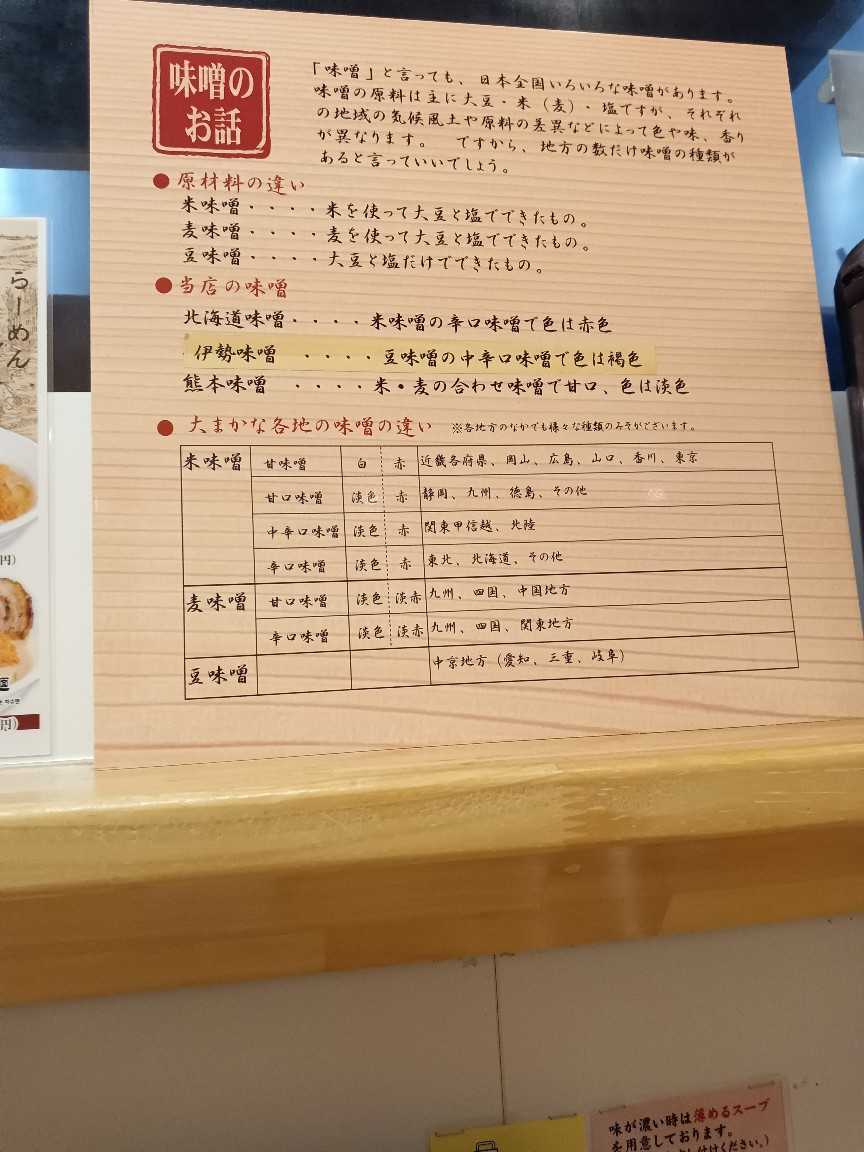 味噌の
お話
「味噌」と言っても、日本全国いろいろな味噌があります。
味噌の原料は主に大豆・米（麦）・塩ですが、それぞれ
の地域の気候風土や原料の差異などによって色や味、香り
が異なります。　ですから、地方の数だけ味噌の種類が
あると言っていいでしょう。
●原材料の違い
米味噌・・・・米を使って大豆と塩でできたもの。
麦味噌・・・・麦を使って大豆と塩でできたもの。
豆味噌・・・・大豆と塩だけでできたもの。
●当店の味噌
北海道味噌・・・・米味噌の辛口味噌で色は赤色
伊勢味噌　・・・・豆味噌の中辛口味噌で色は褐色
熊本味噌　・・・・米・麦の合わせ味噌で甘口、色は淡色
●大まかな各地の味噌の違い　※各地方のなかでも様々な種類のみそがございます。
米味噌 甘味噌 白 赤 近畿各府県、岡山、広島、山口、香川、東京
甘口味噌 淡色 赤 静岡、九州、徳島、その他
中辛口味噌 淡色 赤 関東甲信越、北陸
辛口味噌 淡色 赤 東北、北海道、その他
麦味噌 甘口味噌 淡色 淡赤 九州、四国、中国地方
辛口味噌 淡色 淡赤 九州、四国、関東地方
豆味噌 中京地方（愛知、三重、岐阜）
らーめん
円）
円）
味が濃い時は薄めるスープ
を用意しております。
し付けください。）